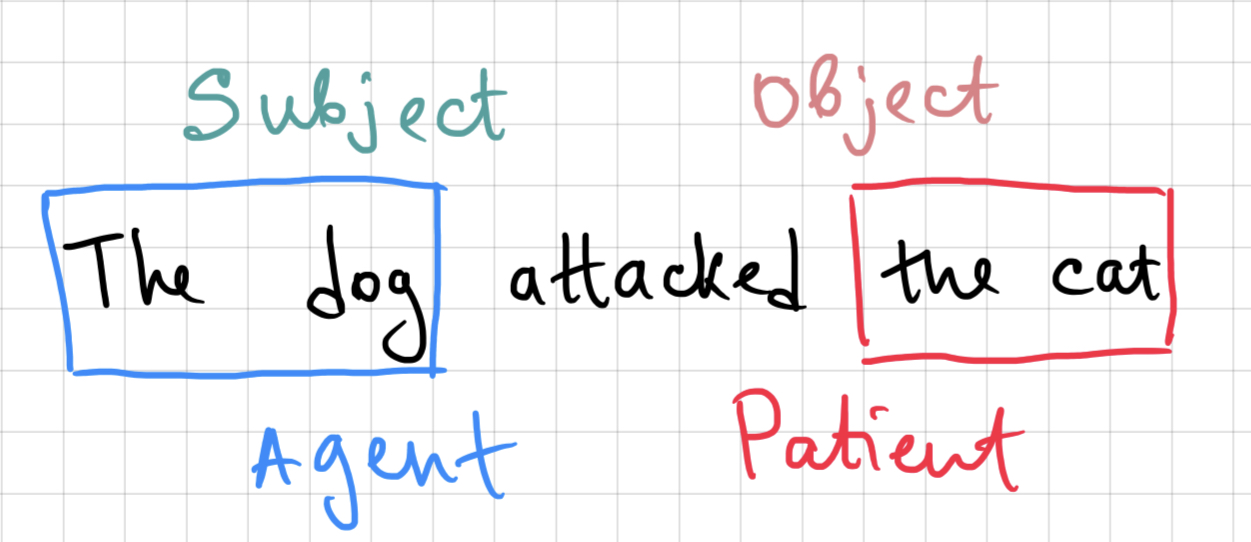 Subject Object
The dog attacked the cat
Agent Patient